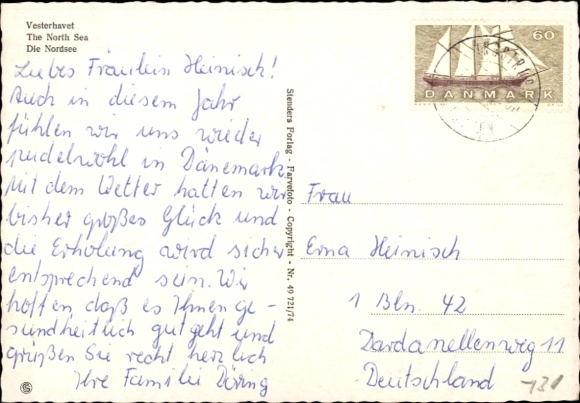 Vesterhavet
The North Sea
Die Nordsee
Liebes Fräulein Heinisch!
Auch in diesem Jahr
fühlen wir uns wieder
pudelwohl in Dänemark.
Mit dem Wetter hatten wir
bisher großes Glück und
die Erholung wird sicher
entsprechend sein. Wir
hoffen daß es Ihnen ge-
sundheitlich gut geht und
grüßen Sie recht herzlich
Ihre Familie Döring
Stenders Forlag - Farvefoto - Copyright - Nr. 49 721/74
60
DANMARK
Frau
Erna Heinisch
1 Bln. 42
Dardanellenweg 11
Deutschland